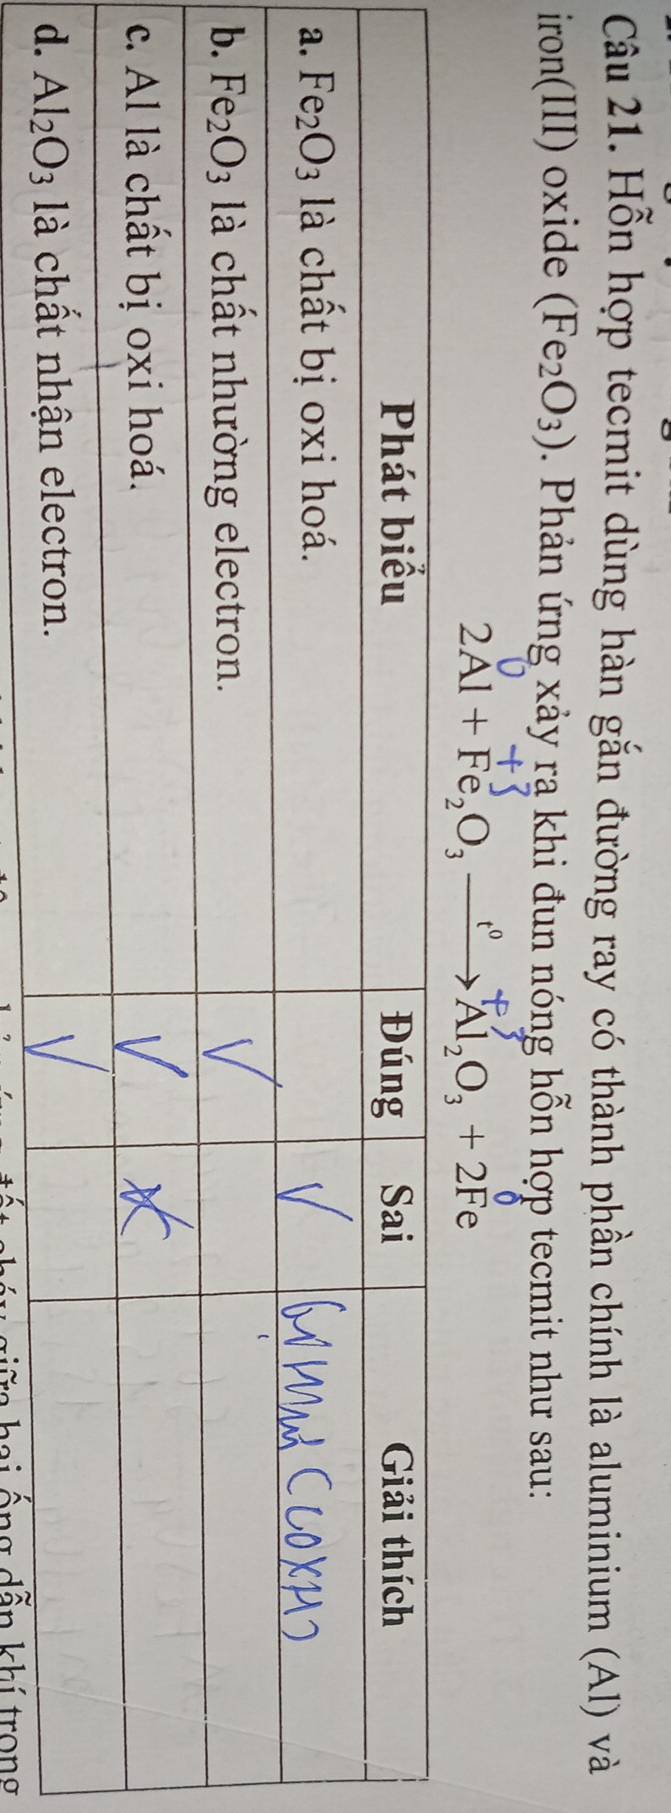 Câu 21. Hỗn hợp tecmit dùng hàn gắn đường ray có thành phần chính là aluminium (Al) và
iron(III) oxide (Fe₂O₃). Phản ứng xảy ra khi đun nóng hỗn hợp tecmit như sau:
0 +3 +3 0
2Al + Fe₂O₃ —t⁰→ Al₂O₃ + 2Fe
Phát biểu Đúng Sai Giải thích
a. Fe₂O₃ là chất bị oxi hoá. √
b. Fe₂O₃ là chất nhường electron. √
c. Al là chất bị oxi hoá. √
d. Al₂O₃ là chất nhận electron. √
giữa hai ống dẫn khí trong